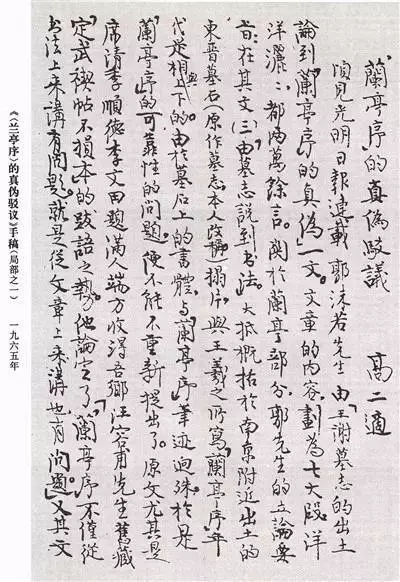 「蘭亭序」的真偽駁議
高二適
頃見光明日報連載郭沫若先生「由王謝墓志的出土
論到「蘭亭序的真偽」一文。文章的内容,劃為七大段,洋
洋灑灑,都兩萬餘言。關於蘭亭部分,郭先生的立論要
旨,在其文(三)「由墓志說到书法」,大抵概括於南京附近出土的
東晉墓石(原作墓志,本人改稱)搨片,與王羲之所寫「蘭亭序」年
代是相上下的。由於墓石上的書體,与「蘭亭序」筆迹迥殊,於是
「蘭亭序」的可靠性的問題,便不能不重新提出了。原文尤其是
席清季順德李文田題滿人端方收得吾鄉汪容甫先生舊藏
「定武禊帖不損本」的跋語之勢,他論定了「蘭亭序」不僅從
书法上來講有問題,就是從文章上來講也有問題」又其文
《〈兰亭序〉的真伪驳议》手稿(局部之一) 一九六五年